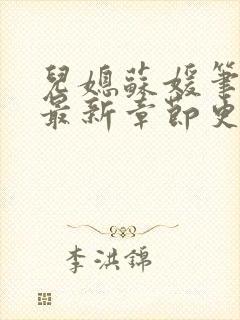 兒媳蘇媛筆
最新章節史
李洪錦